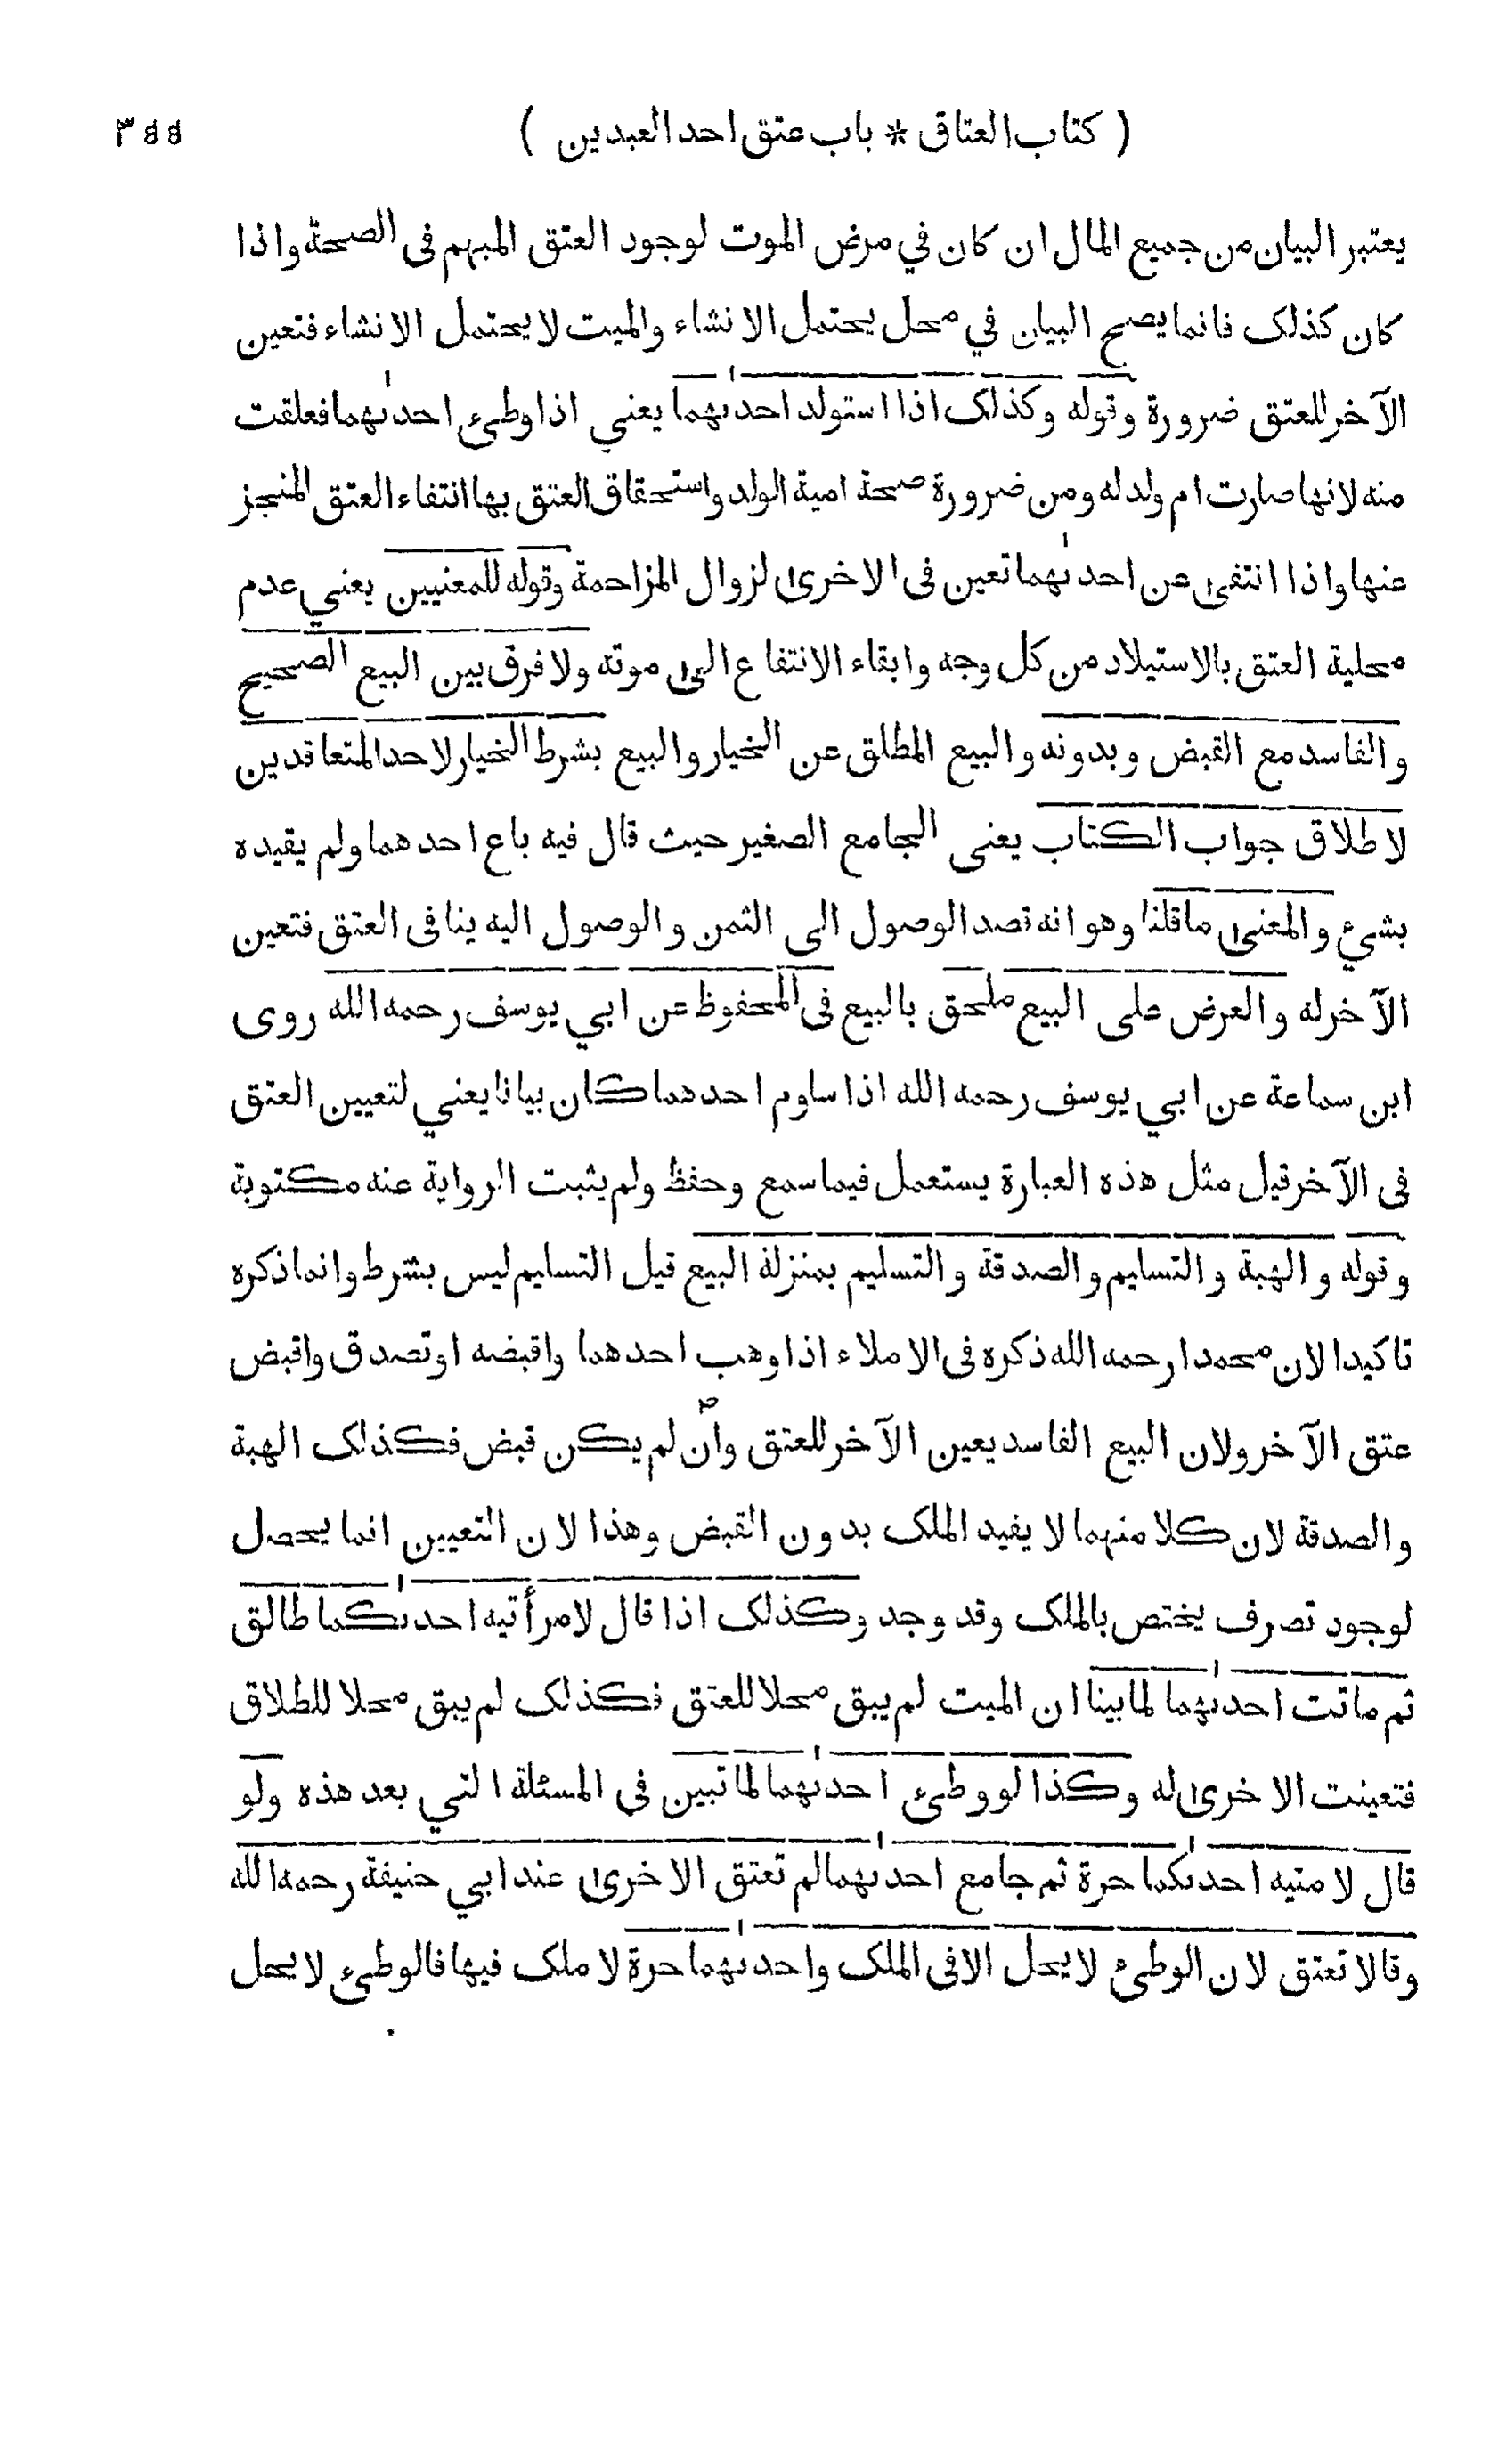 ( كتاب العتاق * باب عتق احد العبدين ) ٣٥٥
يعتبر البيان من جميع المال ان كان في مرض الموت لوجود العتق المبهم فى الصحة واذا
كان كذلك فانما يصح البيان في محل يحتمل الانشاء والميت لا يحتمل الانشاء فتعين
الآخر للعتق ضرورة وقوله وكذلك اذا استولد احدىهما يعني اذا وطىء احدىهما فعلقت
منه لانها صارت ام ولد له ومن ضرورة صحة امية الولد واستحقاق العتق بها انتفاء العتق المنجز
عنها واذا انتفى عن احدىهما تعين فى الاخرى لزوال المزاحمة وقوله للمعنيين يعني عدم
محلية العتق بالاستيلاد من كل وجه وابقاء الانتفاع الى موته ولا فرق بين البيع الصحيح
والفاسد مع القبض وبدونه والبيع المطلق عن الخيار والبيع بشرط الخيار لاحد المتعاقدين
لاطلاق جواب الكتاب يعنى الجامع الصغير حيث قال فيه باع احدهما ولم يقيده
بشيء والمعنى ما قلنا وهو انه قصد الوصول الى الثمن والوصول اليه ينافى العتق فتعين
الآخر له والعرض على البيع ملحق بالبيع فى المحفوظ عن ابي يوسف رحمه الله روى
ابن سماعة عن ابي يوسف رحمه الله اذا ساوم احدهما كان بيانا يعني لتعيين العتق
فى الآخر قيل مثل هذه العبارة يستعمل فيما سمع وحفظ ولم يثبت الرواية عنه مكتوبة
وقوله والهبة والتسليم والصدقة والتسليم بمنزلة البيع قيل التسليم ليس بشرط وانما ذكره
تاكيدا لان محمدا رحمه الله ذكره فى الاملاء اذا وهب احدهما واقبضه او تصدق واقبض
عتق الآخر ولان البيع الفاسد يعين الآخر للعتق وان لم يكن قبض فكذلك الهبة
والصدقة لان كلا منهما لا يفيد الملك بدون القبض وهذا لان التعيين انما يحصل
لوجود تصرف يختص بالملك وقد وجد وكذلك اذا قال لامرأتيه احدىكما طالق
ثم ماتت احدىهما لما بينا ان الميت لم يبق محلا للعتق فكذلك لم يبق محلا للطلاق
فتعينت الاخرى له وكذا لو وطىء احدىهما لما تبين في المسئلة التي بعد هذه ولو
قال لامتيه احدىكما حرة ثم جامع احدىهما لم تعتق الاخرى عند ابي حنيفة رحمه الله
وقالا تعتق لان الوطىء لا يحل الا فى الملك واحدىهما حرة لا ملك فيها فالوطىء لا يحل